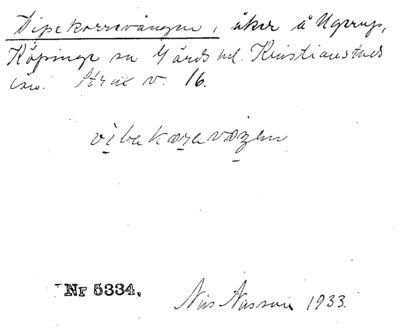 Vipekorrsvången, åker å Ugerup,
Köpinge sn Gärds hd. Kristianstads
län. Strax v. 16.
vibekơravơŋen
Nr 5334. Nils Nilsson 1933.